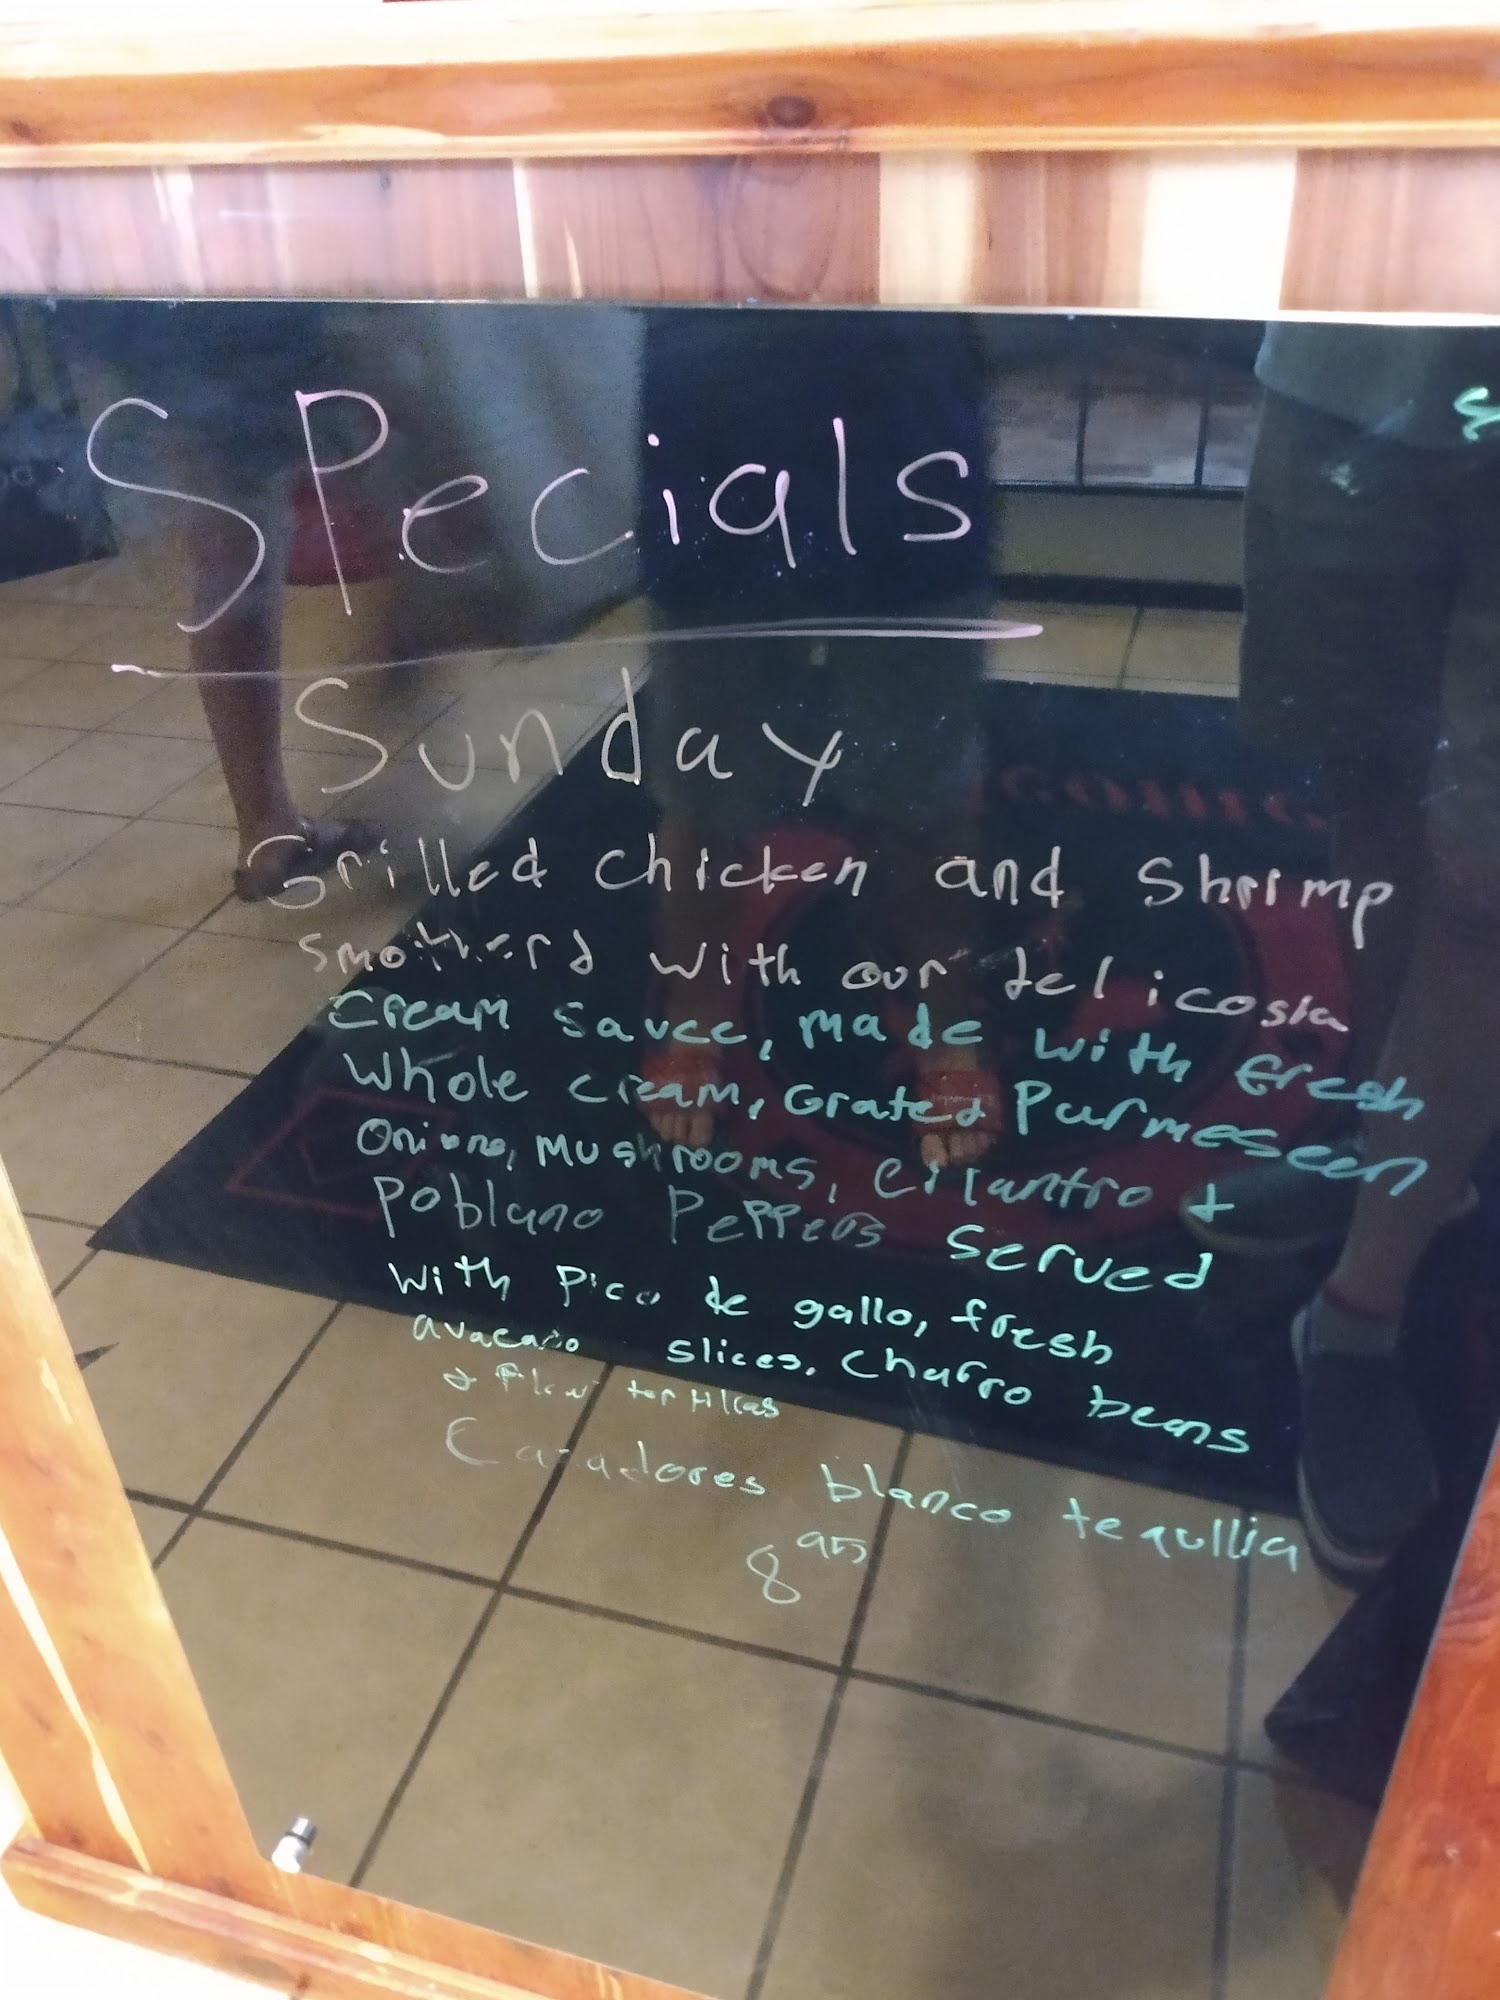 Specials
Sunday
Grilled chicken and shrimp
smotherd with our delicosia
Cream sauce, made with fresh
Whole cream, Grated Purmeseen
Onions, Mushrooms, Cilantro &
Poblano Peppers served
with pico de gallo, fresh
avacado slices, charro beans
& flour tortillas
Cazadores blanco tequllia
8 95